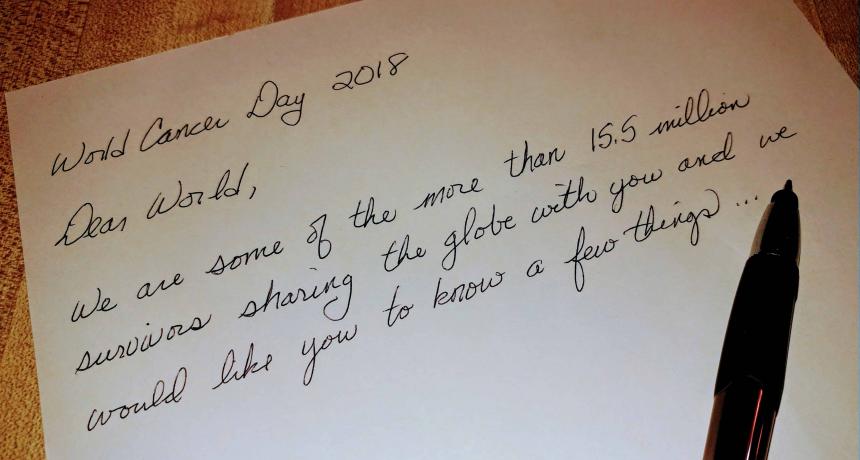 World Cancer Day 2018
Dear World,
We are some of the more than 15.5 million
survivors sharing the globe with you and we
would like you to know a few things...